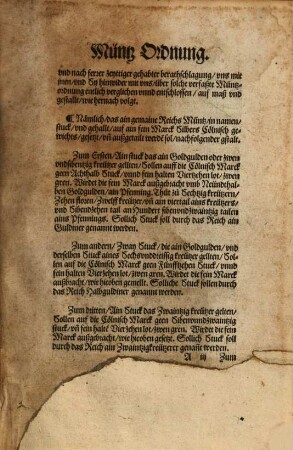 Müntz Ordnung.
vnd nach ferrer zeytiger gehabter berathschlagung / vns mit
jnen / vnd Sy hinwider mit vns / über solche verfaßte Müntz-
ordnung einlich verglichen vnnd entschlossen / auf maß vnd
gestallt / wie hernach volgt.
¶ Nämlich / das ain gemaine Reichs Müntz / in namen /
stuck / vnd gehallt / auf ain fein Marck Silbers Cölnisch ge-
wychts / gesetzt / vñ außgetailt werdē sol / nachfolgender gstalt.
Zum Ersten / Ain stuck das ain Goldgulden oder zwen
vndsibentzig kreützer gelten / Sollen auff die Cölnisch Marck
geen Achthalb Stuck / vnnd fein halten Vierzehen lot / zwen
gren. Wirdet die fein Marck außgebracht vmb Neündthal-
ben Goldgulden / ain Pfenning. Thüt zü Sechtzig kreützern /
Zehen floren / Zwelff kreützer / vñ ain viertail ains kreützers /
vnd Sibendzehen tail an Hundert sibenvndzwaintzig tailen
ains Pfennings. Sollich Stuck soll durch das Reich am
Guldiner genannt werden.
Zum andern / Zway Stuck / die ain Goldgulden / vnd
derselben Stuck aines Sechsvnddreissig kreützer gelten / Sol-
len auf die Cölnisch Marck geen Fünfftzehen Stuck / vnnd
fein halten Vierzehen lot / zwen gren. Wirdet die fein Marck
außbracht / wie hieoben gemellt. Solliche Stuck sollen durch
das Reich Halbguldiner genannt werden.
Zum dritten / Ain Stuck das Zwaintzig kreützer gelten /
Sollen auf die Cölnisch Marck geen Sibenvnndzwaintzig
stuck / vñ fein haltē Vierzehen lot / zwen gren. Wirdt die fein
Marck außgebracht / wie hieoben gesetzt. Sollich Stuck soll
durch das Reich ain Zwaintzigkreützerer genañt werden.
A iij Zum